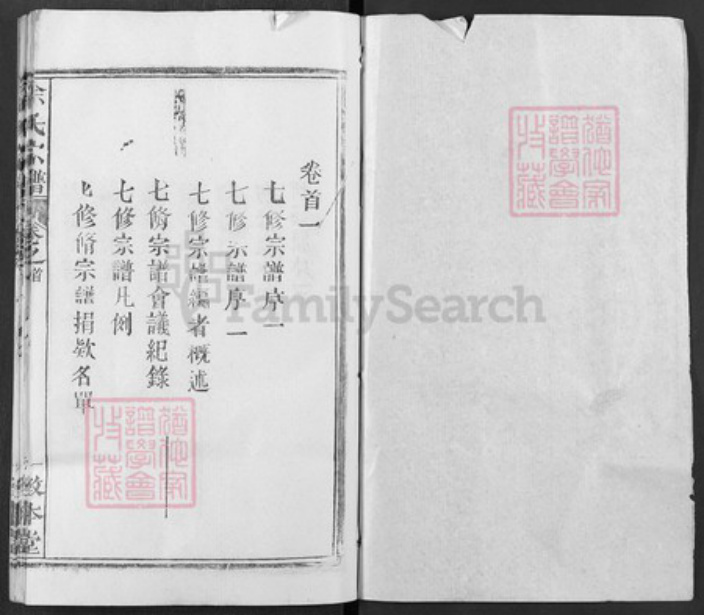 卷首一
七修宗譜序一
七修宗譜序二
七修宗譜編者概述
七脩宗譜會議紀錄
七修宗譜凡例
七修脩宗譜捐欵名單
余氏宗譜
卷之首
敦本堂
猶他家譜學會特藏
猶他家譜學會特藏
FamilySearch